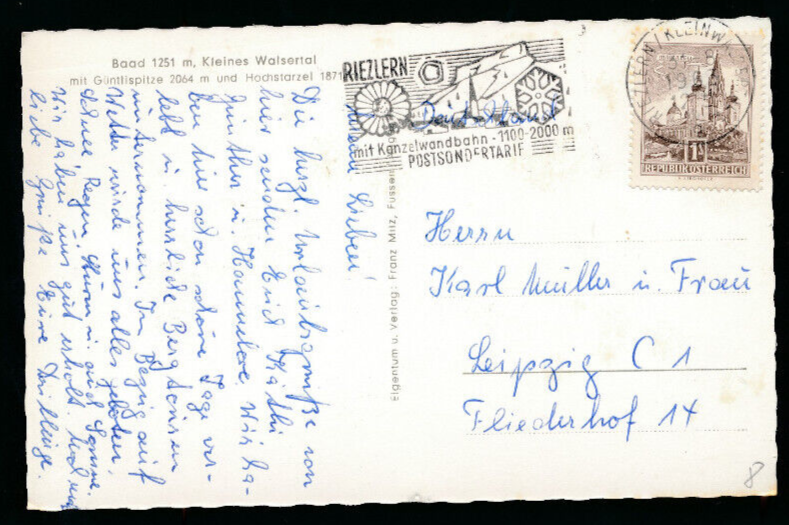 Baad 1251 m, Kleines Walsertal
mit Güntlispitze 2064 m und Hochstarzel 1871
RIEZLERN
mit Kanzelwandbahn - 1100-2000 m
POSTSONDERTARIF
RIEZLERN / KLEINW
1S
REPUBLIK ÖSTERREICH
Deutschland
Herrn
Karl Müller u. Frau
Leipzig C 1
Fliederhof 14
8
Eigentum u. Verlag: Franz Milz, Füssen
Meine Lieben!
Die herzl. Urlaubsgrüße von
hier senden Euch Käthi
Günther u. Hannelore. Wir ha-
ben hier schon schöne Tage ver-
lebt u. herrliche Bergtouren
unternommen. In Bezug auf
Wetter wurde uns alles geboten,
Schnee, Regen, Sturm u. auch Sonne.
Wir haben uns gut erholt. Und nun
liebe Grüße Eure